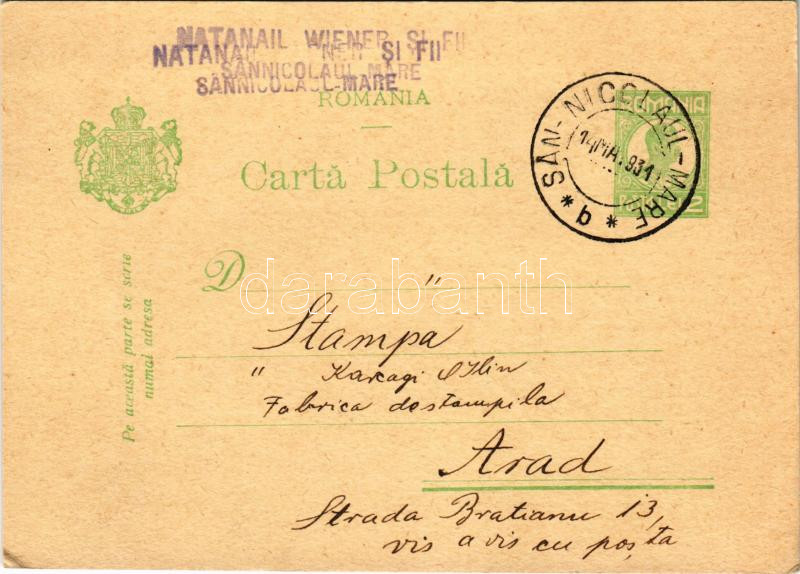 NATANAIL WIENER ȘI FII
NATANAIL ȘI FII
SÂNNICOLAUL MARE
SÂNNICOLAUL-MARE
ROMANIA
Cartă Poștală
SÂN-NICOLAUL-MARE
14 MA. 931
* b *
ROMANIA
2
Pe această parte se scrie
numai adresa
D
"
darabanth
Stampa
" Karcagi
Fabrica de stampila
Arad
Strada Bratianu 13,
vis a vis cu poșta